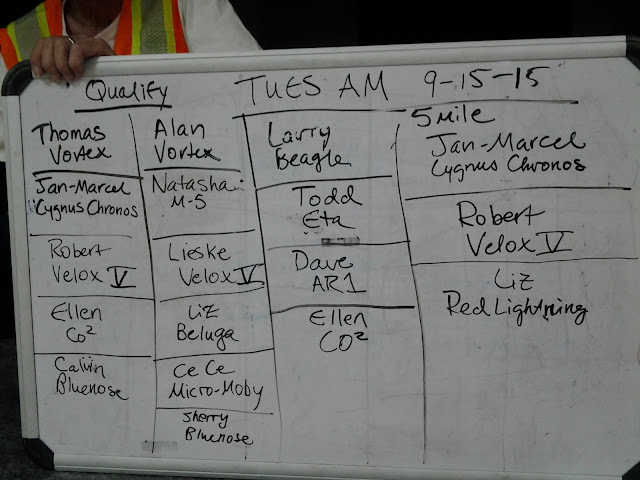 Qualify TUES AM 9-15-15
Thomas
Vortex
Jan-Marcel
Cygnus Chronos
Robert
Velox V
Ellen
CO²
Calvin
Bluenose
Alan
Vortex
Natasha
M-5
Lieske
Velox V
Liz
Beluga
Ce Ce
Micro-Moby
Sherry
Bluenose
Larry
Beagle
Todd
Eta
Dave
AR1
Ellen
CO²
5 Mile
Jan-Marcel
Cygnus Chronos
Robert
Velox V
Liz
Red Lightning